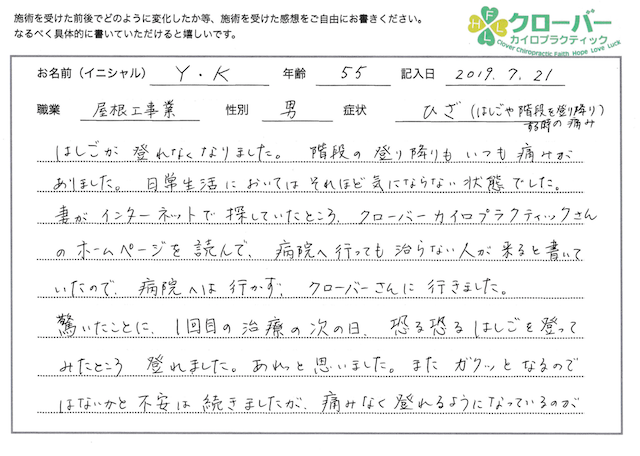 施術を受けた前後でどのように変化したか等、施術を受けた感想をご自由にお書きください。
なるべく具体的に書いていただけると嬉しいです。
FHLL
クローバー
カイロプラクティック
Clover Chiropractic Faith Hope Love Luck
お名前（イニシャル） Y・K 年齢 55 記入日 2019.7.21
職業 屋根工事業 性別 男 症状 ひざ（はしごや階段を登り降り）
する時の痛み
はしごが登れなくなりました。階段の登り降りもいつも痛みが
ありました。日常生活においてはそれほど気にならない状態でした。
妻がインターネットで探していたところ、クローバーカイロプラクティックさん
のホームページを読んで、病院へ行っても治らない人が来ると書いて
いたので、病院へは行かず、クローバーさんに行きました。
驚いたことに、1回目の治療の次の日、恐る恐るはしごを登って
みたところ 登れました。あれっと思いました。またガクッとなるので
はないかと不安は続きましたが、痛みなく登れるようになっているのが